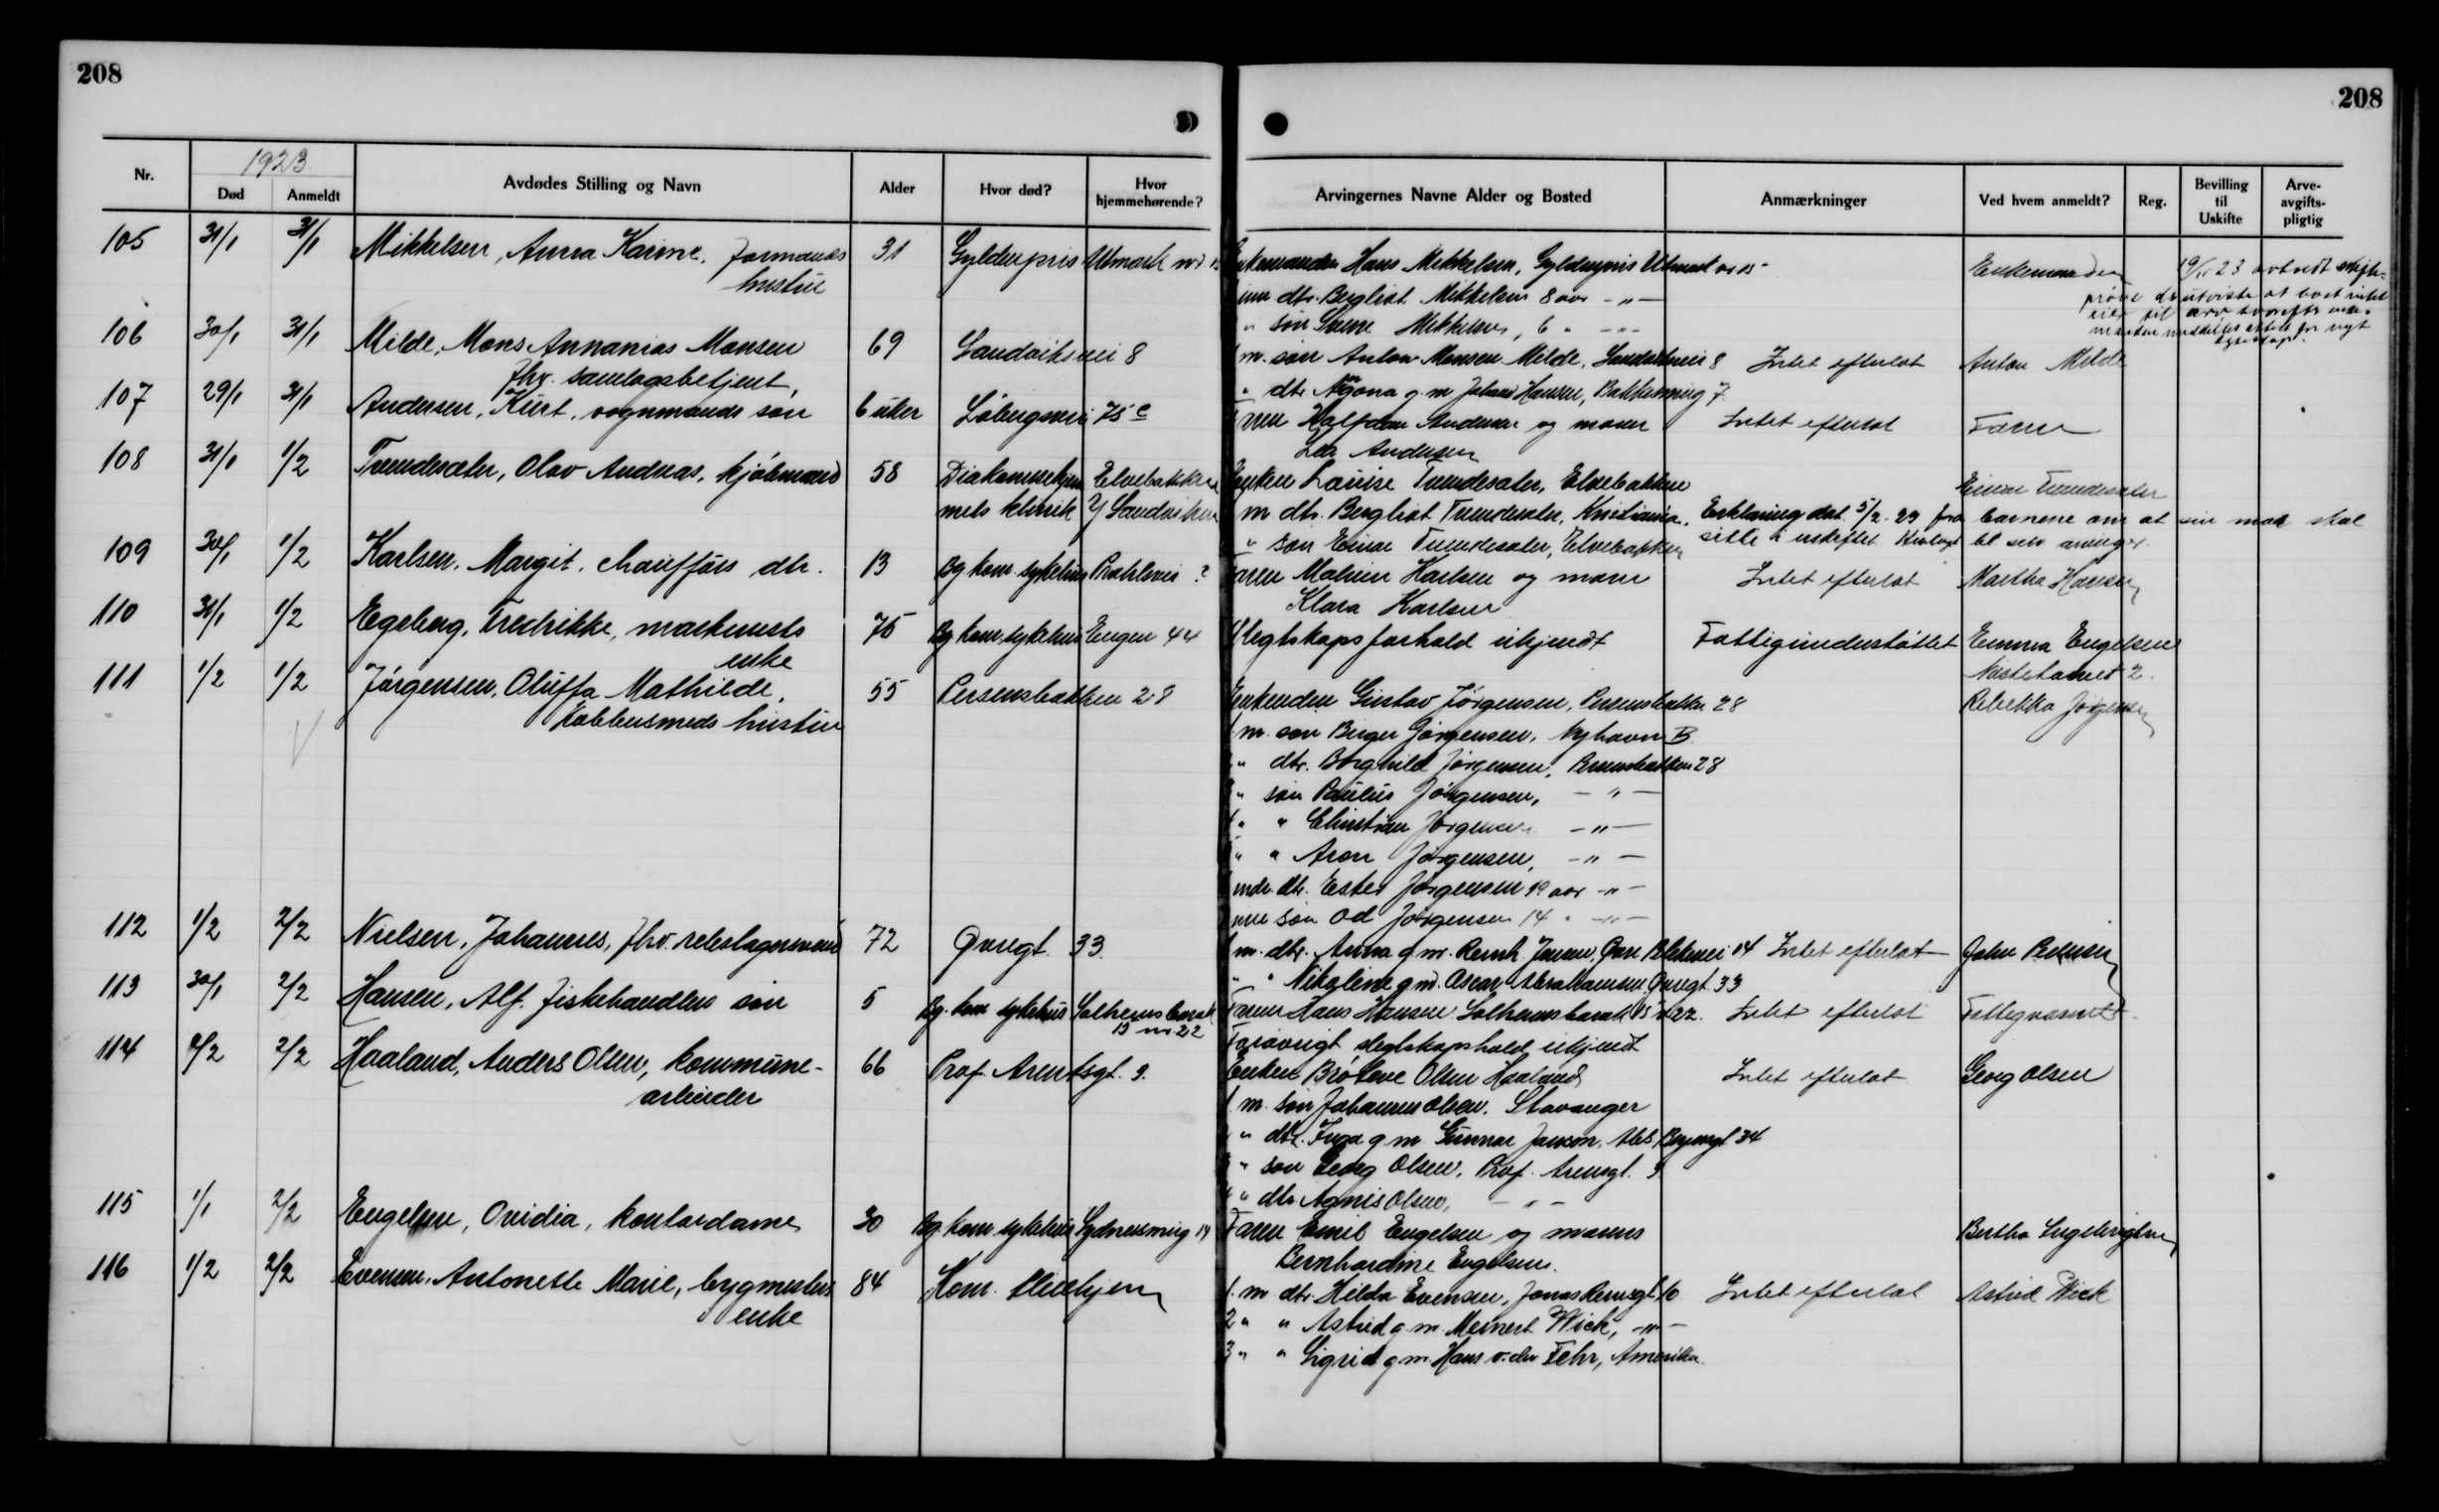 208
208
Nr.
1923
Død
Anmeldt
Avdødes Stilling og Navn
Alder
Hvor død?
Hvor hjemmehørende?
Arvingernes Navne Alder og Bosted
Anmærkninger
Ved hvem anmeldt?
Reg.
Bevilling til Uskifte
Arve-avgifts-pligtig
105 31/1 31/1 Mikkelsen, Anna Karine, formands 31 Gyldenpris Utmark nr 15 Enkemanden Hans Mikkelsen, Gyldenpris Utmark nr 15 Enkemanden
hustru
um dtr. Bergliot Mikkelsen 8 aar -"-
" søn Sverre Mikkelsen, 6 " -"-
106 30/1 31/1 Milde, Mons Annanias Monsen 69 Sandviksvei 8 1 m. søn Anton Monsen Milde, Sandviksvei 8 Intet efterlat Anton Milde
fhv. samlagsbetjent,
" dtr Agona g. m Johan Hansen, Bakkesmug 7.
107 29/1 31/1 Andersen, Kurt, vognmands søn 6 uker Løbergsvei 75 c Faren Halfdan Andersen og moren Intet efterlat Faren
Lea Andersen
108 31/1 1/2 Tvendesæter, Olav Andreas, kjøbmand 58 Diakonissehjem Elvebakken Enken Louise Tvendesæter, Elvebakken Einar Tvendesæter
mets klinik 7 Sandviken m dtr. Bergliot Tvendesæter, Kristiania, Erklæring dat. 5/2-23 fra barnene om at sin mor skal
" søn Einar Tvendesæter, Elvebakken sitte i uskiftet
109 30/1 1/2 Karlsen, Margit, chaufførs dtr. 13 Bg kom. sykehus Prahlsvei ? Faren Karlsen og moren Intet efterlat Martha Hansen
Klara Karlsen
110 31/1 1/2 Egeberg, Fredrikke, maskinists 75 Bg kom. sykehus Engen 44 Slegtskapsforhold ukjendt Fattigunderstøttet Emma Engelsen
enke
Nøstetorvet 2.
111 1/2 1/2 Jørgensen, Oluffa Mathilde, 55 Persensbakken 28 Enkemden Gustav Jørgensen, Persensbakken 28 Rebekka Jørgensen
Kobbersmeds hustru
1 m. søn Birger Jørgensen, Nyhavn B
" dtr. Borghild Jørgensen, Persensbakken 28
" søn Paulus Jørgensen, -"-
" " Christian Jørgensen -"-
" " Aron Jørgensen, -"-
mdr. dtr. Ester Jørgensen 19 aar -"-
um søn Od Jørgensen 14 " -"-
112 1/2 2/2 Nielsen, Johannes, fhv. rebslagermand 72 Øvregt. 33. 1 m. dtr. Anna g m. Bernh. Jensen, Øvre Blekevei 14 Intet efterlat John Pedersen
" " Nikoline g m. Oscar Abrahamsen, Øvregt. 33
113 30/1 2/2 Hansen, Alf, fiskehandlers søn 5 Bg. kom sykehus Solheimsbarak Faren Hans Hansen Solheimsbarak 15 nr 22. Intet efterlat Fattigvæsenet
15 nr 22
Forøvrigt slegtskapshold ukjendt
114 2/2 2/2 Haaland, Anders Olsen, kommune- 66 Prof. Arentsgt. 9. Enken Brøteve Olsen Haaland Intet efterlat Georg Olsen
arbeider
1 m. søn Johannes Olsen, Stavanger
" dtr. Inga g m. Gunnar Janson, Abs. Beyersgt. 34
" søn Georg Olsen, Prof. Arensgt. 9
" dtr Agnis Olsen, -"-
115 1/1 2/2 Engelsen, Ovidia, kontordame 30 Bg. kom sykehus Sydnessmug 14 Faren Emil Engelsen og moren Bertha Ingebrigtsen
Bernhardine Engelsen.
116 1/2 2/2 Evensen, Antonette Marie, bygmesters 84 Kom. Pleiehjem 1. m dtr Hilda Evensen, Jonas Reinsgt. 10 Intet efterlat Astrid Wick
enke
2 " " Astrid g. m. Meinert Wick, -"-
3 " " Sigrid g m. Hans v. der Fehr, Amerika.